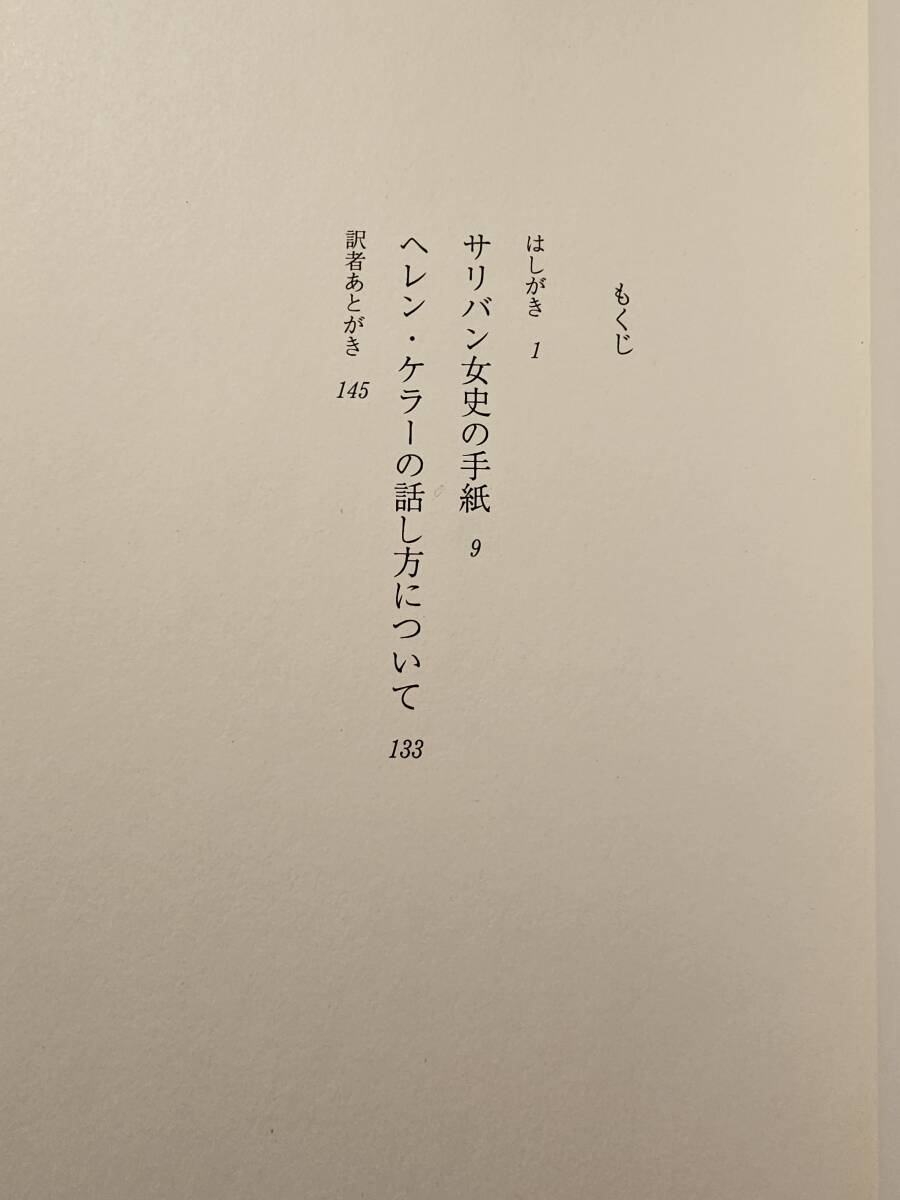 もくじ
はしがき 1
サリバン女史の手紙 9
ヘレン・ケラーの話し方について 133
訳者あとがき 145